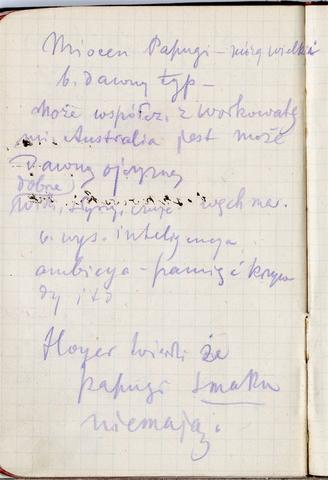 Miocen Papugi – mózg wielki
b. dawny typ –
może współcz. z workowaty
mi. Australia jest może
Dawną ojczyzną
dobre
widzi, słyszy, czuje węch ma.
b. wys. inteligencja
ambicya – pamięć krzyw
dy i t d
Hoyer twierdzi że
papugi smaku
niemają.